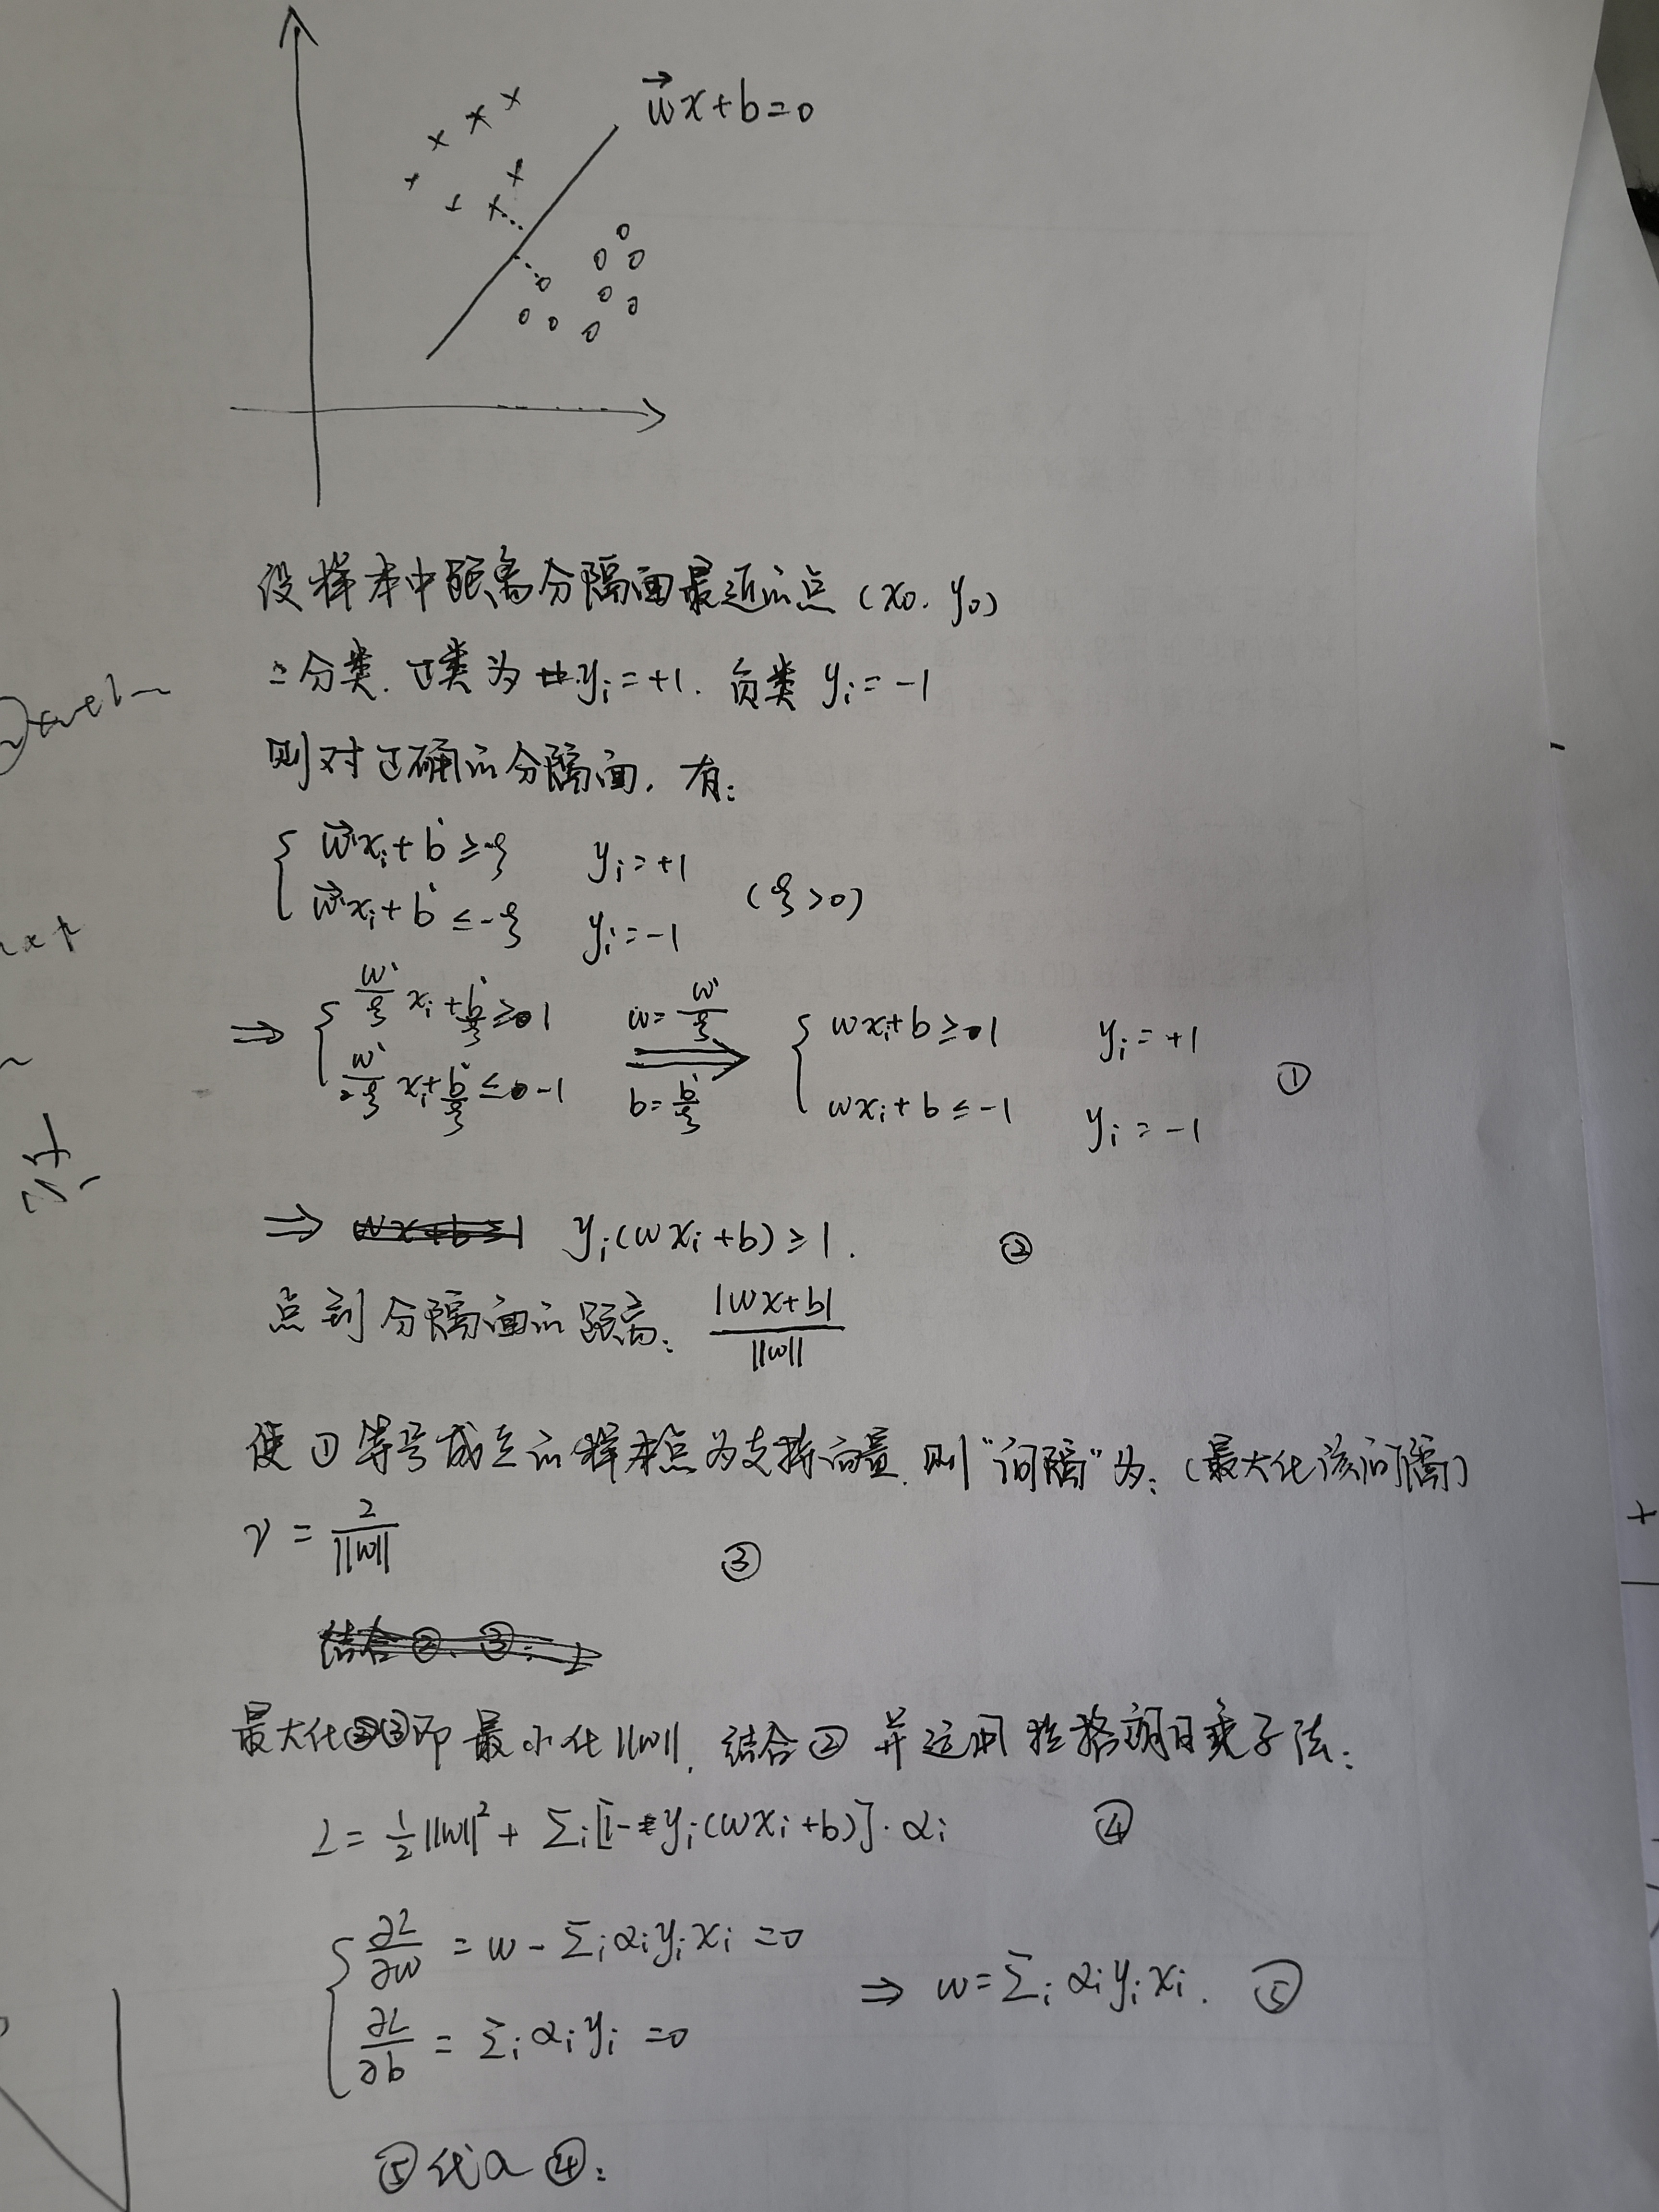 w⃗x+b=0
设样本中距离分隔面最近的点 (x₀, y₀)
二分类. 正类为 yᵢ=+1. 负类 yᵢ=-1
则对正确的分隔面, 有:
w⃗'xᵢ+b' ≥ ξ yᵢ=+1
w⃗'xᵢ+b' ≤ -ξ yᵢ=-1 (ξ>0)
⇒ { w'/ξ xᵢ + b'/ξ ≥ 1 w=w'/ξ { wxᵢ+b ≥ 1 yᵢ=+1
w'/ξ xᵢ + b'/ξ ≤ -1 b=b'/ξ wxᵢ+b ≤ -1 yᵢ=-1 ①
⇒ yᵢ(wxᵢ+b) ≥ 1. ②
点到分隔面的距离: |wx+b| / ||w||
使①等号成立的样本点为支持向量. 则"间隔"为: (最大化该间隔)
γ = 2/||w|| ③
结合②、③:
最大化③即最小化||w||, 结合②并运用拉格朗日乘子法:
L = ½||w||² + Σᵢ[1-yᵢ(wxᵢ+b)]·αᵢ ④
∂L/∂w = w - Σᵢαᵢyᵢxᵢ = 0
⇒ w=Σᵢ αᵢyᵢxᵢ. ⑤
∂L/∂b = Σᵢαᵢyᵢ = 0
⑤代入④: